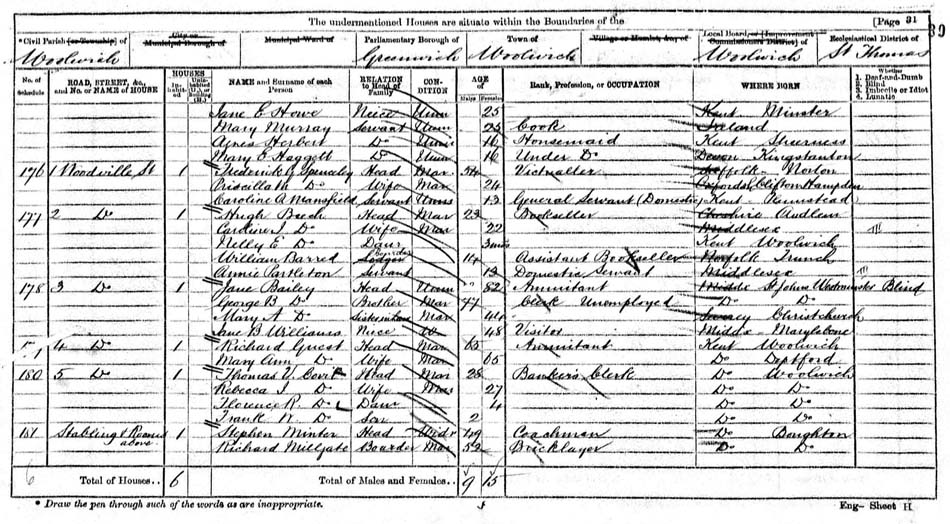 The undermentioned Houses are situate within the Boundaries of the [Page 31
39
*Civil Parish [or Township] of City or Municipal Borough of Municipal Ward of Parliamentary Borough of Town of Village or Hamlet, &c., of Local Board, or [Improvement Commissioners District] of Ecclesiastical District of
Woolwich Greenwich Woolwich Woolwich St Thomas
No. of Schedule ROAD, STREET, &c., and No. or NAME of HOUSE HOUSES Inhabited Uninhabited (U.), or Building (B.) NAME and Surname of each Person RELATION to Head of Family CONDITION AGE of Males Females Rank, Profession, or OCCUPATION WHERE BORN Whether 1. Deaf-and-Dumb 2. Blind 3. Imbecile or Idiot 4. Lunatic
Jane E Howe Neice Unm 25 Kent Minster
Mary Murray Servant Unm 25 Cook Ireland
Agnes Herbert Do Unm 16 Housemaid Kent Sheerness
Mary E Haggett Do Unm 16 Under Do Devon
176 1 Woodville St 1 Frederick G Head Mar 54 Victualler Suffolk Norton
Do Wife Mar 24 Oxfordsh Clifton Hampden
Caroline A Mansfield Servant Unm 13 General Servant (Domestic) Kent Plumstead
177 2 Do 1 Hugh Beech Head Mar 23 Bookseller Cheshire Audlem
Caroline J Do Wife Mar 22 Middlesex
Nelly E Do Daur 3mos Kent Woolwich
William Barred Boarder 14 Assistant Bookseller Norfolk Trunch
Annie Servant 13 Domestic Servant Middlesex
178 3 Do 1 Jane Bailey Head Unm 82 Annuitant Middx St Johns Westminster Blind
George B Do Brother Mar 77 Clerk Unemployed Do Do
Mary A Do Mar 44 Surrey Christchurch
Jane B Williams Niece W 48 Visitor Middx Marylebone
4 Do 1 Richard Guest Head Mar 65 Annuitant Kent Woolwich
Mary Ann Do Wife Mar 65 Do Deptford
180 5 Do 1 Thomas V Head Mar 28 Bankers Clerk Do Woolwich
Rebecca J Do Wife Mar 27 Do Do
Florence R Do Daur 4 Do Do
Frank W Do Son 2 Do Do
181 Stabling & Rooms above 1 Stephen Minter Head Widr 49 Coachman Do Boughton
Richard Millgate Boarder Mar 52 Bricklayer Do Do
6 Total of Houses.. 6 Total of Males and Females.. 9 15
* Draw the pen through such of the words as are inappropriate. Eng- Sheet H